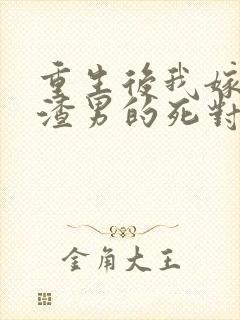 重生後我嫁
渣男的死對
金角大王